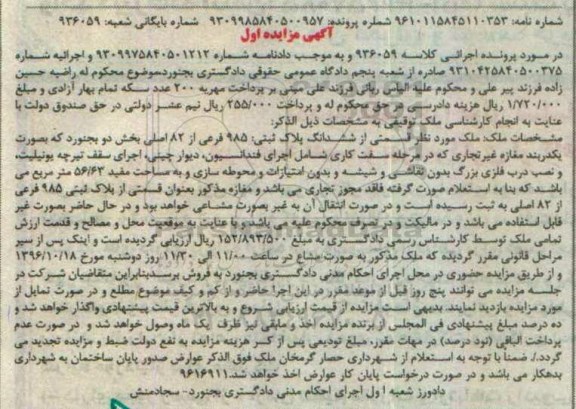 شماره نامه: ۹۶۱۰۱۱۵۸۴۵۱۱۰۳۵۳ شماره پرونده: ۹۳۰۹۹۸۵۸۴۰۵۰۰۹۵۷ شماره بایگانی شعبه: ۹۳۶۰۵۹
آگهی مزایده اول
در مورد پرونده اجرائی کلاسه ۹۳۶۰۵۹ و به موجب دادنامه شماره ۹۳۰۹۹۷۵۸۴۰۵۰۱۲۱۲ و اجرائیه شماره
۹۳۱۰۴۲۵۸۴۰۵۰۰۳۷۵ صادره از شعبه پنجم دادگاه عمومی حقوقی دادگستری بجنورد موضوع محکوم له راضیه حسین
زاده فرزند پیر علی و محکوم علیه الیاس ربانی فرزند علی مبنی بر پرداخت مهریه ۲۰۰ عدد سکه تمام بهار آزادی و مبلغ
۱/۷۲۰/۰۰۰ ریال هزینه دادرسی در حق محکوم له و پرداخت ۲۵۵/۰۰۰ ریال نیم عشر دولتی در حق صندوق دولت با
عنایت به انجام کارشناسی ملک توقیفی به مشخصات ذیل الذکر:
مشخصات ملک: ملک مورد نظر قسمتی از ششدانگ پلاک ثبتی: ۹۸۵ فرعی از ۸۲ اصلی بخش دو بجنورد که بصورت
یکدربند مغازه غیر تجاری که در مرحله سفت کاری شامل اجرای فنداسیون، دیوار چینی، اجرای سقف تیرچه یونیلیت،
و نصب درب فلزی بزرگ بدون نقاشی و شیشه و بدون امتیازات و محوطه سازی و به مساحت مفید ۵۶/۶۳ متر مربع می
باشند که بنا به استعلام صورت گرفته فاقد مجوز تجاری می باشد و مغازه مذکور بعنوان قسمتی از پلاک ثبتی ۹۸۵ فرعی
از ۸۲ اصلی به ثبت رسیده است و در صورت انتقال آن به غیر بصورت مشاعی خواهد بود و در حال حاضر بصورت غیر
قابل استفاده می باشد و در مالکیت و در تصرف محکوم علیه می باشد، با عنایت به موقعیت محل و مصالح و قدمت ارزش
تمامی ملک توسط کارشناس رسمی دادگستری به مبلغ ۱۵۲/۸۹۳/۵۰۰ ریال ارزیابی گردیده است و اینک پس از سیر
مراحل قانونی مقرر گردیده که ملک مذکور به صورت مشاع در ساعت ۱۱/۰۰ الی ۱۱/۳۰ روز دوشنبه مورخ ۱۳۹۶/۱۰/۱۸
و از طریق مزایده حضوری در محل اجرای احکام مدنی دادگستری بجنورد به فروش برسد بنابراین متقاضیان شرکت در
جلسه مزایده می توانند پنج روز قبل از موعد مقرر در این اجرا حاضر و از کم و کیف موضوع مطلع و در صورت تمایل از
مورد مزایده بازدید نمایند. بدیهی است مزایده از قیمت ارزیابی شروع و به بالاترین قیمت پیشنهادی واگذار خواهد شد و
ده درصد مبلغ پیشنهادی فی المجلس از برنده مزایده اخذ و مابقی نیز ظرف یک ماه وصول خواهد شد و در صورت عدم
پرداخت الباقی (نود درصد) در مهلت مقرر، مبلغ تودیعی پس از کسر هزینه مزایده به نفع دولت ضبط و مزایده تجدید می
گردد./. ضمنا با توجه به استعلام از شهرداری حصار گرمخان ملک فوق الذکر عوارض صدور پایان ساختمان به شهرداری
بدهکار می باشد و در صورت درخواست پایان کار عوارض اخذ خواهد شد. ۹۶۱۶۹۱۱
دادورز شعبه اول اجرای احکام مدنی دادگستری بجنورد- سجادمنش